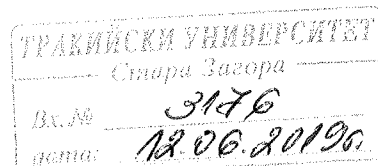 ТРАКИЙСКИ УНИВЕРСИТЕТ
Стара Загора
Вх.№ 3176
дата: 12.06.2019г.